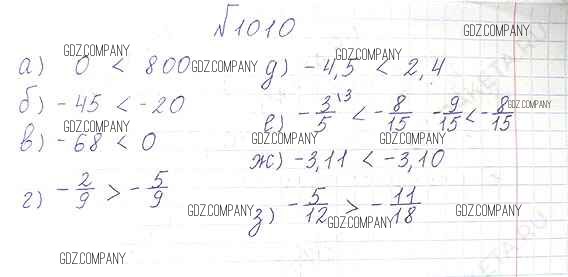 №1010
GDZ.COMPANY
а) 0 < 800
GDZ.COMPANY
GDZ.COMPANY
б) -45 < -20
GDZ.COMPANY
в) -68 < 0
г) -2/9 > -5/9
GDZ.COMPANY
GDZ.COMPANY
д) -4,5 < 2,4
GDZ.COMPANY
е) -3/5 \3 < -8/15 -9/15 < -8/15
GDZ.COMPANY
GDZ.COMPANY
GDZ.COMPANY
ж) -3,11 < -3,10
з) -5/12 > -11/18
GDZ.COMPANY
GDZ.COMPANY
GDZ.COMPANY